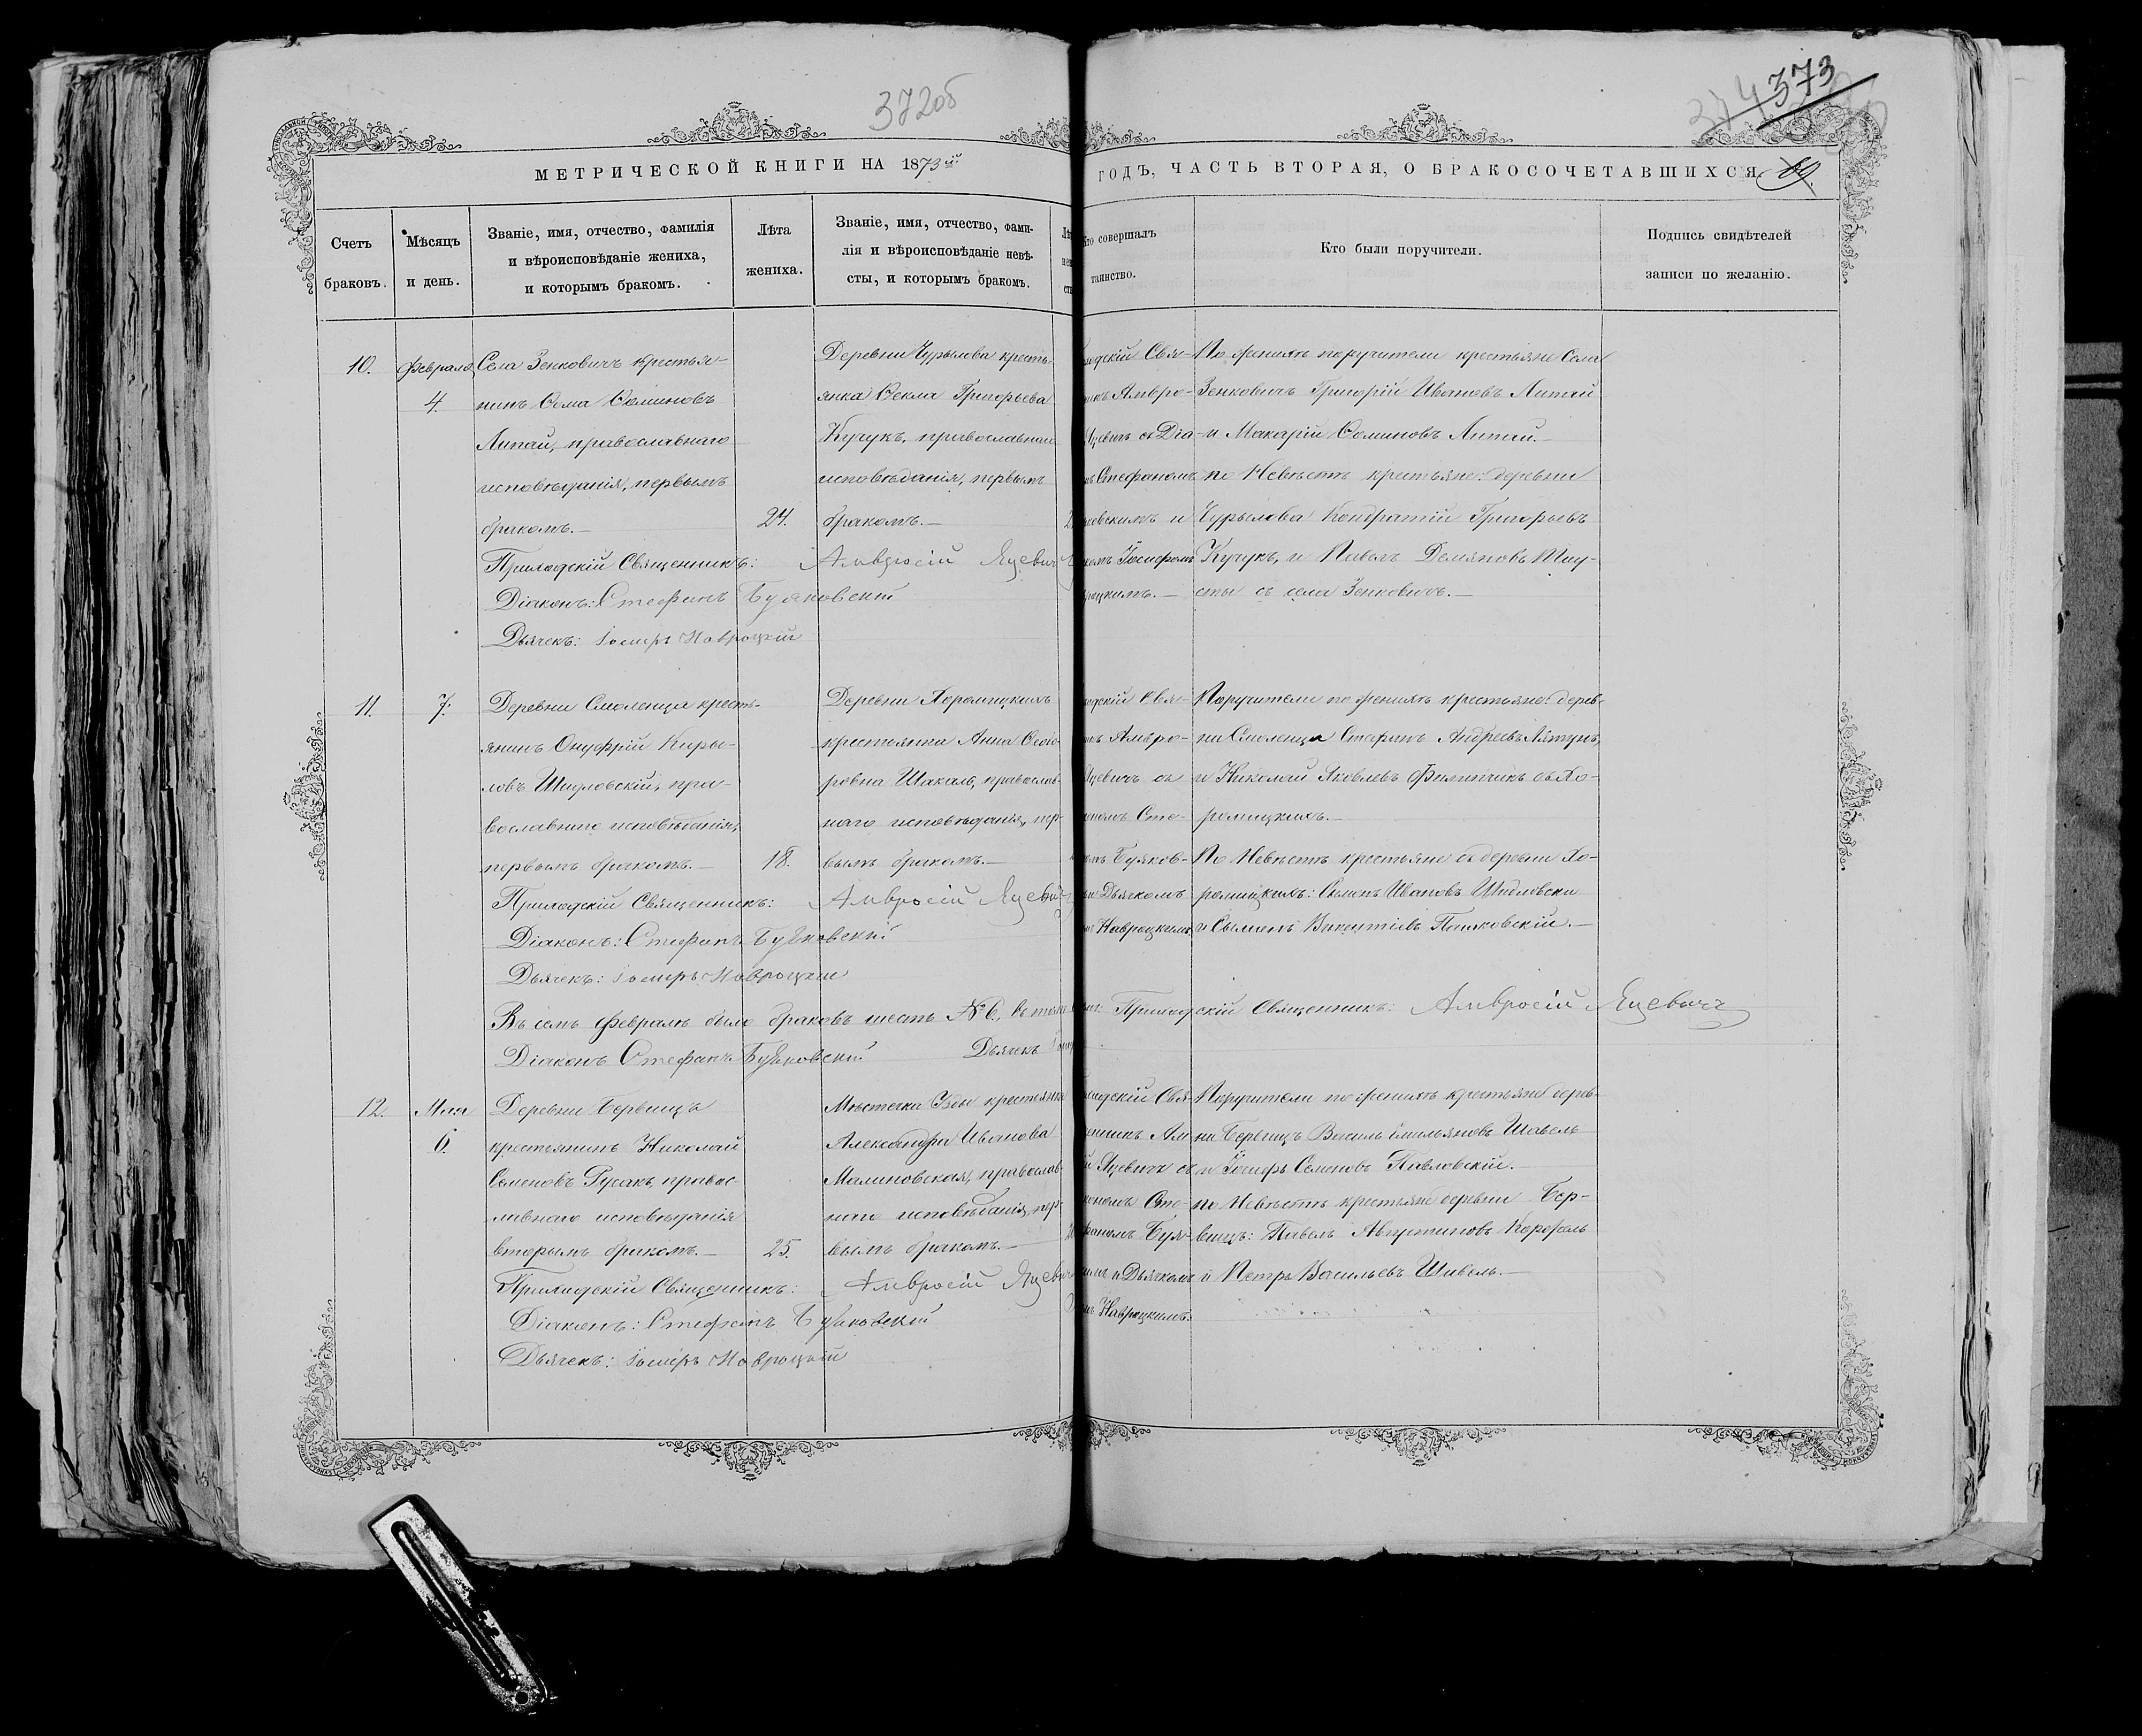 372об
373
МЕТРИЧЕСКОЙ КНИГИ НА 1873й
ГОДЪ, ЧАСТЬ ВТОРАЯ, О БРАКОСОЧЕТАВШИХСЯ.
Счетъ браковъ.
Мѣсяцъ и день.
Званіе, имя, отчество, фамилія
и вѣроисповѣданіе жениха,
и которымъ бракомъ.
Лѣта жениха.
Званіе, имя, отчество, фами-
лія и вѣроисповѣданіе невѣ-
сты, и которымъ бракомъ.
совершалъ
таинство.
Кто были поручители.
Подпись свидѣтелей
записи по желанію.
10.
Февраля
4.
Села Зенковичъ крестья-
нинъ Ѳома Ѳоминовъ
Литай, православнаго
исповѣданія, первымъ
бракомъ.—
24.
Деревни Чурылова кресть-
янка Ѳекла Григорьева
Кучукъ, православнаго
исповѣданія, первымъ
бракомъ.—
Свя-
Амвро-
съ Діа-
Стефаномъ
и
Іосифомъ
По женихѣ поручители крестьяне Села
Зенковичъ Григорій Ивановъ Литай
и Макарій Ѳоминовъ Литай.—
по Невѣстѣ крестьяне: деревни
Чурылова Кондратій Григорьевъ
Кучукъ, и Павелъ Демяновъ
съ села Зенковичъ.—
Приходскій Священникъ: Амвросій Яцевичъ
Діаконъ: Стефанъ Буяковскій
Дьячекъ: Іосифъ Навроцкій
11.
7.
Деревни Смоленца кресть-
янинъ Онуфрій Кири-
ловъ Шидловскій, пра-
вославнаго исповѣданія,
первымъ бракомъ.—
18.
Деревни Хоромицкихъ
крестьянка Анна Ѳеодо-
ровна Шакаль, православ-
наго исповѣданія, пер-
вымъ бракомъ.—
Свя-
Амвро-
Яцевичъ съ
Сте-
Буяков-
Дьячкомъ
Навроцкимъ
Поручители по женихѣ крестьяне: дерев-
ни Смоленца Стефанъ Андреевъ
и Николай Яковлевъ Филипчикъ съ Хо-
ромицкихъ.—
По Невѣстѣ крестьяне съ деревни Хо-
ромицкихъ: Семенъ Ивановъ Шидловски
и Сымонъ Викентіевъ Пашковскій.—
Приходскій Священникъ: Амвросій Яцевичъ
Діаконъ: Стефанъ Буяковскій
Дьячекъ: Іосифъ Навроцкій
Въ семъ Февралѣ было браковъ шесть № 6,
Приходскій Священникъ: Амвросій Яцевичъ
Діаконъ Стефанъ Буяковскій Дьячекъ
12.
Мая
6.
Деревни Бервищъ
крестьянинъ Николай
Семеновъ Русакъ, правос-
лавнаго исповѣданія
вторымъ бракомъ.—
25.
Мѣстечка Узды крестьянка
Александра Иванова
Малиновская, православ-
наго исповѣданія, пер-
вымъ бракомъ.—
Свя-
Ам-
Яцевичъ съ
Сте-
Буя-
и Дьячкомъ
Навроцкимъ.
Поручители по женихѣ крестьяне дерев-
ни Бервищъ Василь Емильяновъ Шавель
и Іосифъ Семеновъ Павловскій.—
по Невѣстѣ крестьяне деревни Бер-
вищъ: Павелъ Августиновъ
и Петръ Васильевъ Шавель.—
Приходскій Священникъ: Амвросій Яцевичъ
Діаконъ: Стефанъ Буяковскій
Дьячекъ: Іосифъ Навроцкій